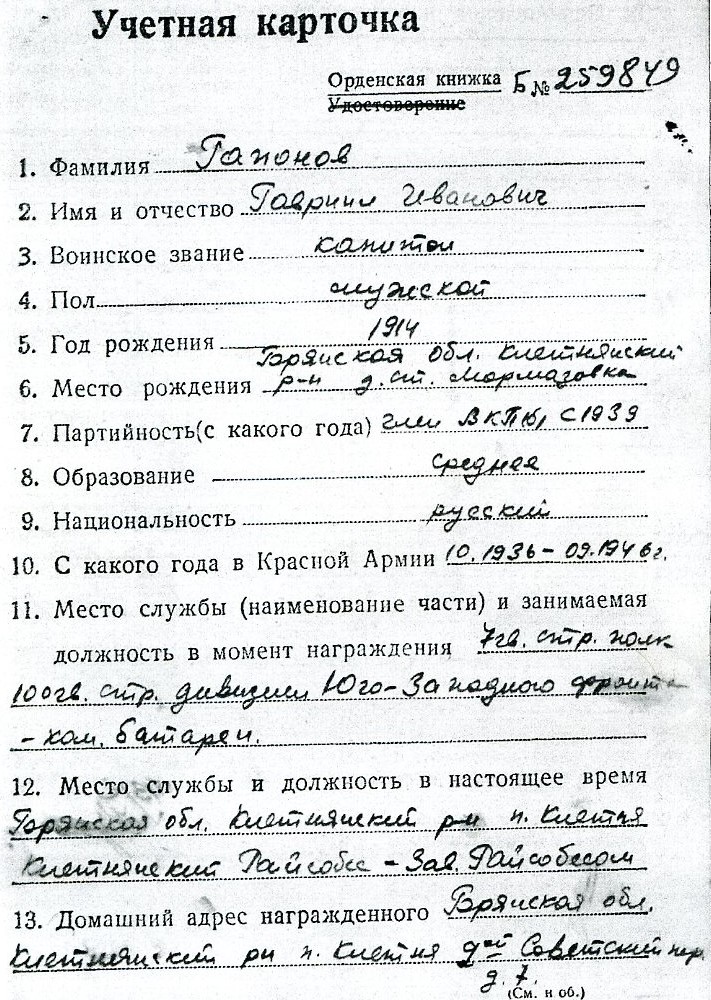 Учетная карточка
Орденская книжка Б № 259849
Удостоверение
1. Фамилия Гапонов
2. Имя и отчество Гавриил Иванович
3. Воинское звание капитан
4. Пол мужской
5. Год рождения 1914
Брянская обл. Клетнянский
6. Место рождения р-н д. ст. Мормазовка
7. Партийность (с какого года) член ВКП(б) с 1939
8. Образование среднее
9. Национальность русский
10. С какого года в Красной Армии 10.1936 - 09.1946 г.
11. Место службы (наименование части) и занимаемая
должность в момент награждения 7 гв. стр. полк
100 гв. стр. дивизии Юго-Западного фронта
- ком. батареи.
12. Место службы и должность в настоящее время
Брянская обл. Клетнянский р-н п. Клетня
Клетнянский Райсобес - Зав. Райсобесом
13. Домашний адрес награжденного Брянская обл.
Клетнянский р-н п. Клетня 2ой Советский пер.
д. 7.
(См. н об.)